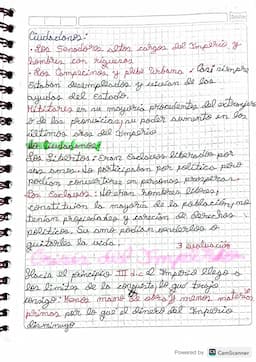 Ciudadanos:
• Los Senadores altos cargos del Imperio y
hombres con riquezas
• Los Campesinos y plebe Urbana: Casi siempre
estaban desempleados y vivian de las
ayudas del Estado.
Militares en su mayoría procedentes del extranjero
o de las provincias, su poder aumentó en los
últimos años del Imperio
No Ciudadanos
Los Libertos: Eran Esclavos liberados por
sus amos. No participaban por política pero
podían convertirse en personas prosperas.
Los Esclavos: No eran hombres libres,
constituían la mayoría de la población, no
tenían propiedades y carecían de derechos
políticos. Su amo podía venderlos o
quitarles la vida.
3 evaluación
del Imperio
Hacia el principio III d.c el Imperio llego a
los limites de la conquista, lo que trajo
consigo: Menos mano de obra y menos materias
primas por lo que el dinero del Imperio
disminuyo
Powered by CS CamScanner